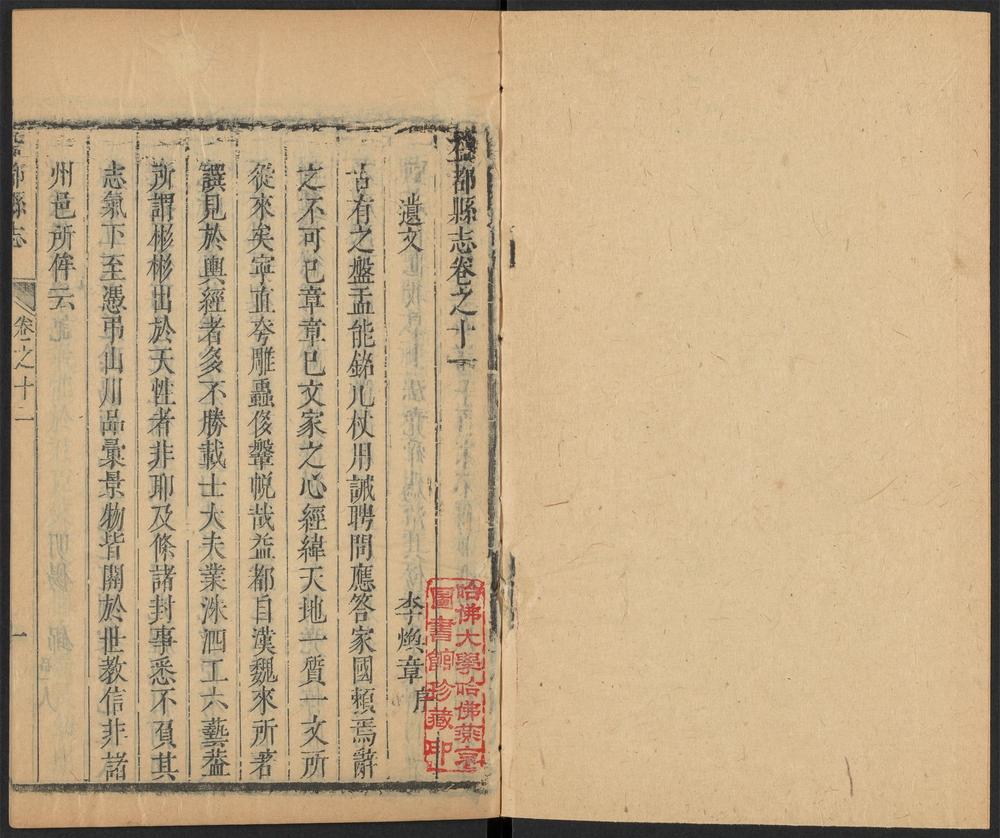 益都縣志卷之十二
遺文
李煥章序
古有之盤盂能銘几杖用誡聘問應答家國頼焉辭
之不可已章章已文家之心經緯天地一質一文所
從來矣寧直夸雕蟲侈鞶帨哉益都自漢魏來所著
譔見於輿經者多不勝載士大夫業洙泗工六藝葢
所謂彬彬出於天性者非耶及條諸封事悉不負其
志氣下至憑弔山川品彙景物皆關於世教信非諸
州邑所侔云
益都縣志
卷之十二
一
哈佛大學哈佛燕京
圖書館珍藏印